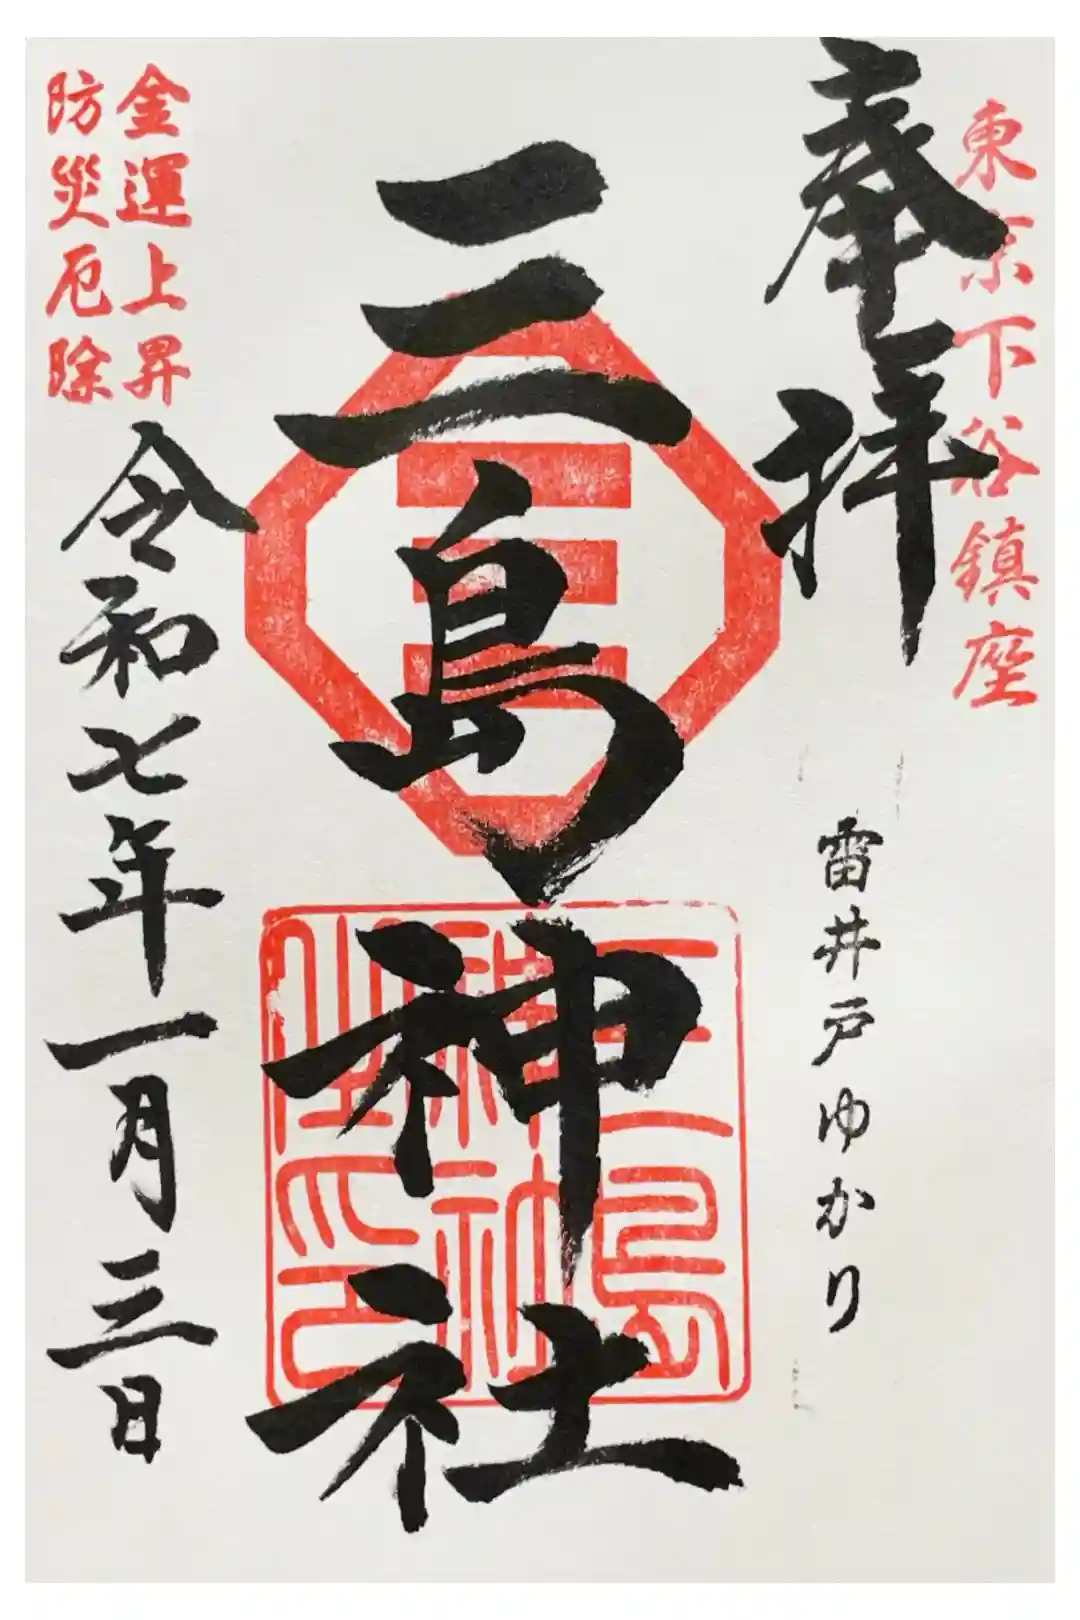 東京下谷鎮座
奉拝
雷井戸ゆかり
三島神社
三島神社之印
金運上昇
防災厄除
令和七年一月三日